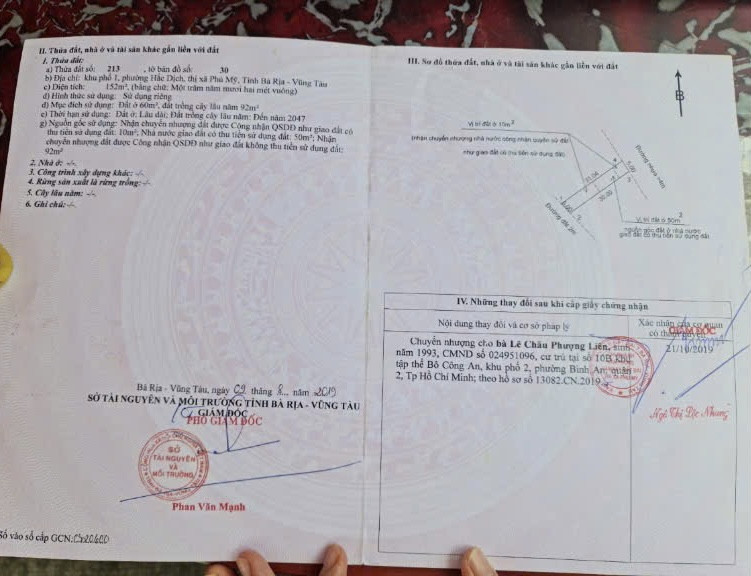 II. Thửa đất, nhà ở và tài sản khác gắn liền với đất
1. Thửa đất:
a) Thửa đất số: 213 , tờ bản đồ số: 30
b) Địa chỉ: khu phố 1, phường Hắc Dịch, thị xã Phú Mỹ, Tỉnh Bà Rịa - Vũng Tàu
c) Diện tích: 152m², (bằng chữ: Một trăm năm mươi hai mét vuông)
d) Hình thức sử dụng: Sử dụng riêng
đ) Mục đích sử dụng: Đất ở 60m², đất trồng cây lâu năm 92m²
e) Thời hạn sử dụng: Đất ở: Lâu dài; Đất trồng cây lâu năm: Đến năm 2047
g) Nguồn gốc sử dụng: Nhận chuyển nhượng đất được Công nhận QSDĐ như giao đất có
thu tiền sử dụng đất: 10m²; Nhà nước giao đất có thu tiền sử dụng đất: 50m²; Nhận
chuyển nhượng đất được Công nhận QSDĐ như giao đất không thu tiền sử dụng đất:
92m²
2. Nhà ở: -/-
3. Công trình xây dựng khác: -/-
4. Rừng sản xuất là rừng trồng: -/-
5. Cây lâu năm: -/-
6. Ghi chú: -/-
Bà Rịa - Vũng Tàu, ngày 09 tháng 8 năm 2019
SỞ TÀI NGUYÊN VÀ MÔI TRƯỜNG TỈNH BÀ RỊA - VŨNG TÀU
GIÁM ĐỐC
PHÓ GIÁM ĐỐC
SỞ
TÀI NGUYÊN
VÀ
MÔI TRƯỜNG
Phan Văn Mạnh
Số vào sổ cấp GCN:
III. Sơ đồ thửa đất, nhà ở và tài sản khác gắn liền với đất
B
Vị trí đất ở 10m²
(nhận chuyển nhượng nhà nước công nhận quyền sử đất
như giao đất có thu tiền sử dụng đất)
Đường nhựa
5.00
30.00
Đường đất
Vị trí đất ở 50m²
nguồn gốc đất ở nhà nước
giao đất có thu tiền sử dụng đất
IV. Những thay đổi sau khi cấp giấy chứng nhận
Nội dung thay đổi và cơ sở pháp lý
Xác nhận của cơ quan
có thẩm quyền
GIÁM ĐỐC
Chuyển nhượng cho bà Lê Châu Phượng Liên, sinh
năm 1993, CMND số 024951096, cư trú tại số 10B khu
tập thể Bộ Công An, khu phố 2, phường Bình An, quận
2, Tp Hồ Chí Minh; theo hồ sơ số 13082.CN.2019
21/10/2019
Ngô Thị Lộc Nhung